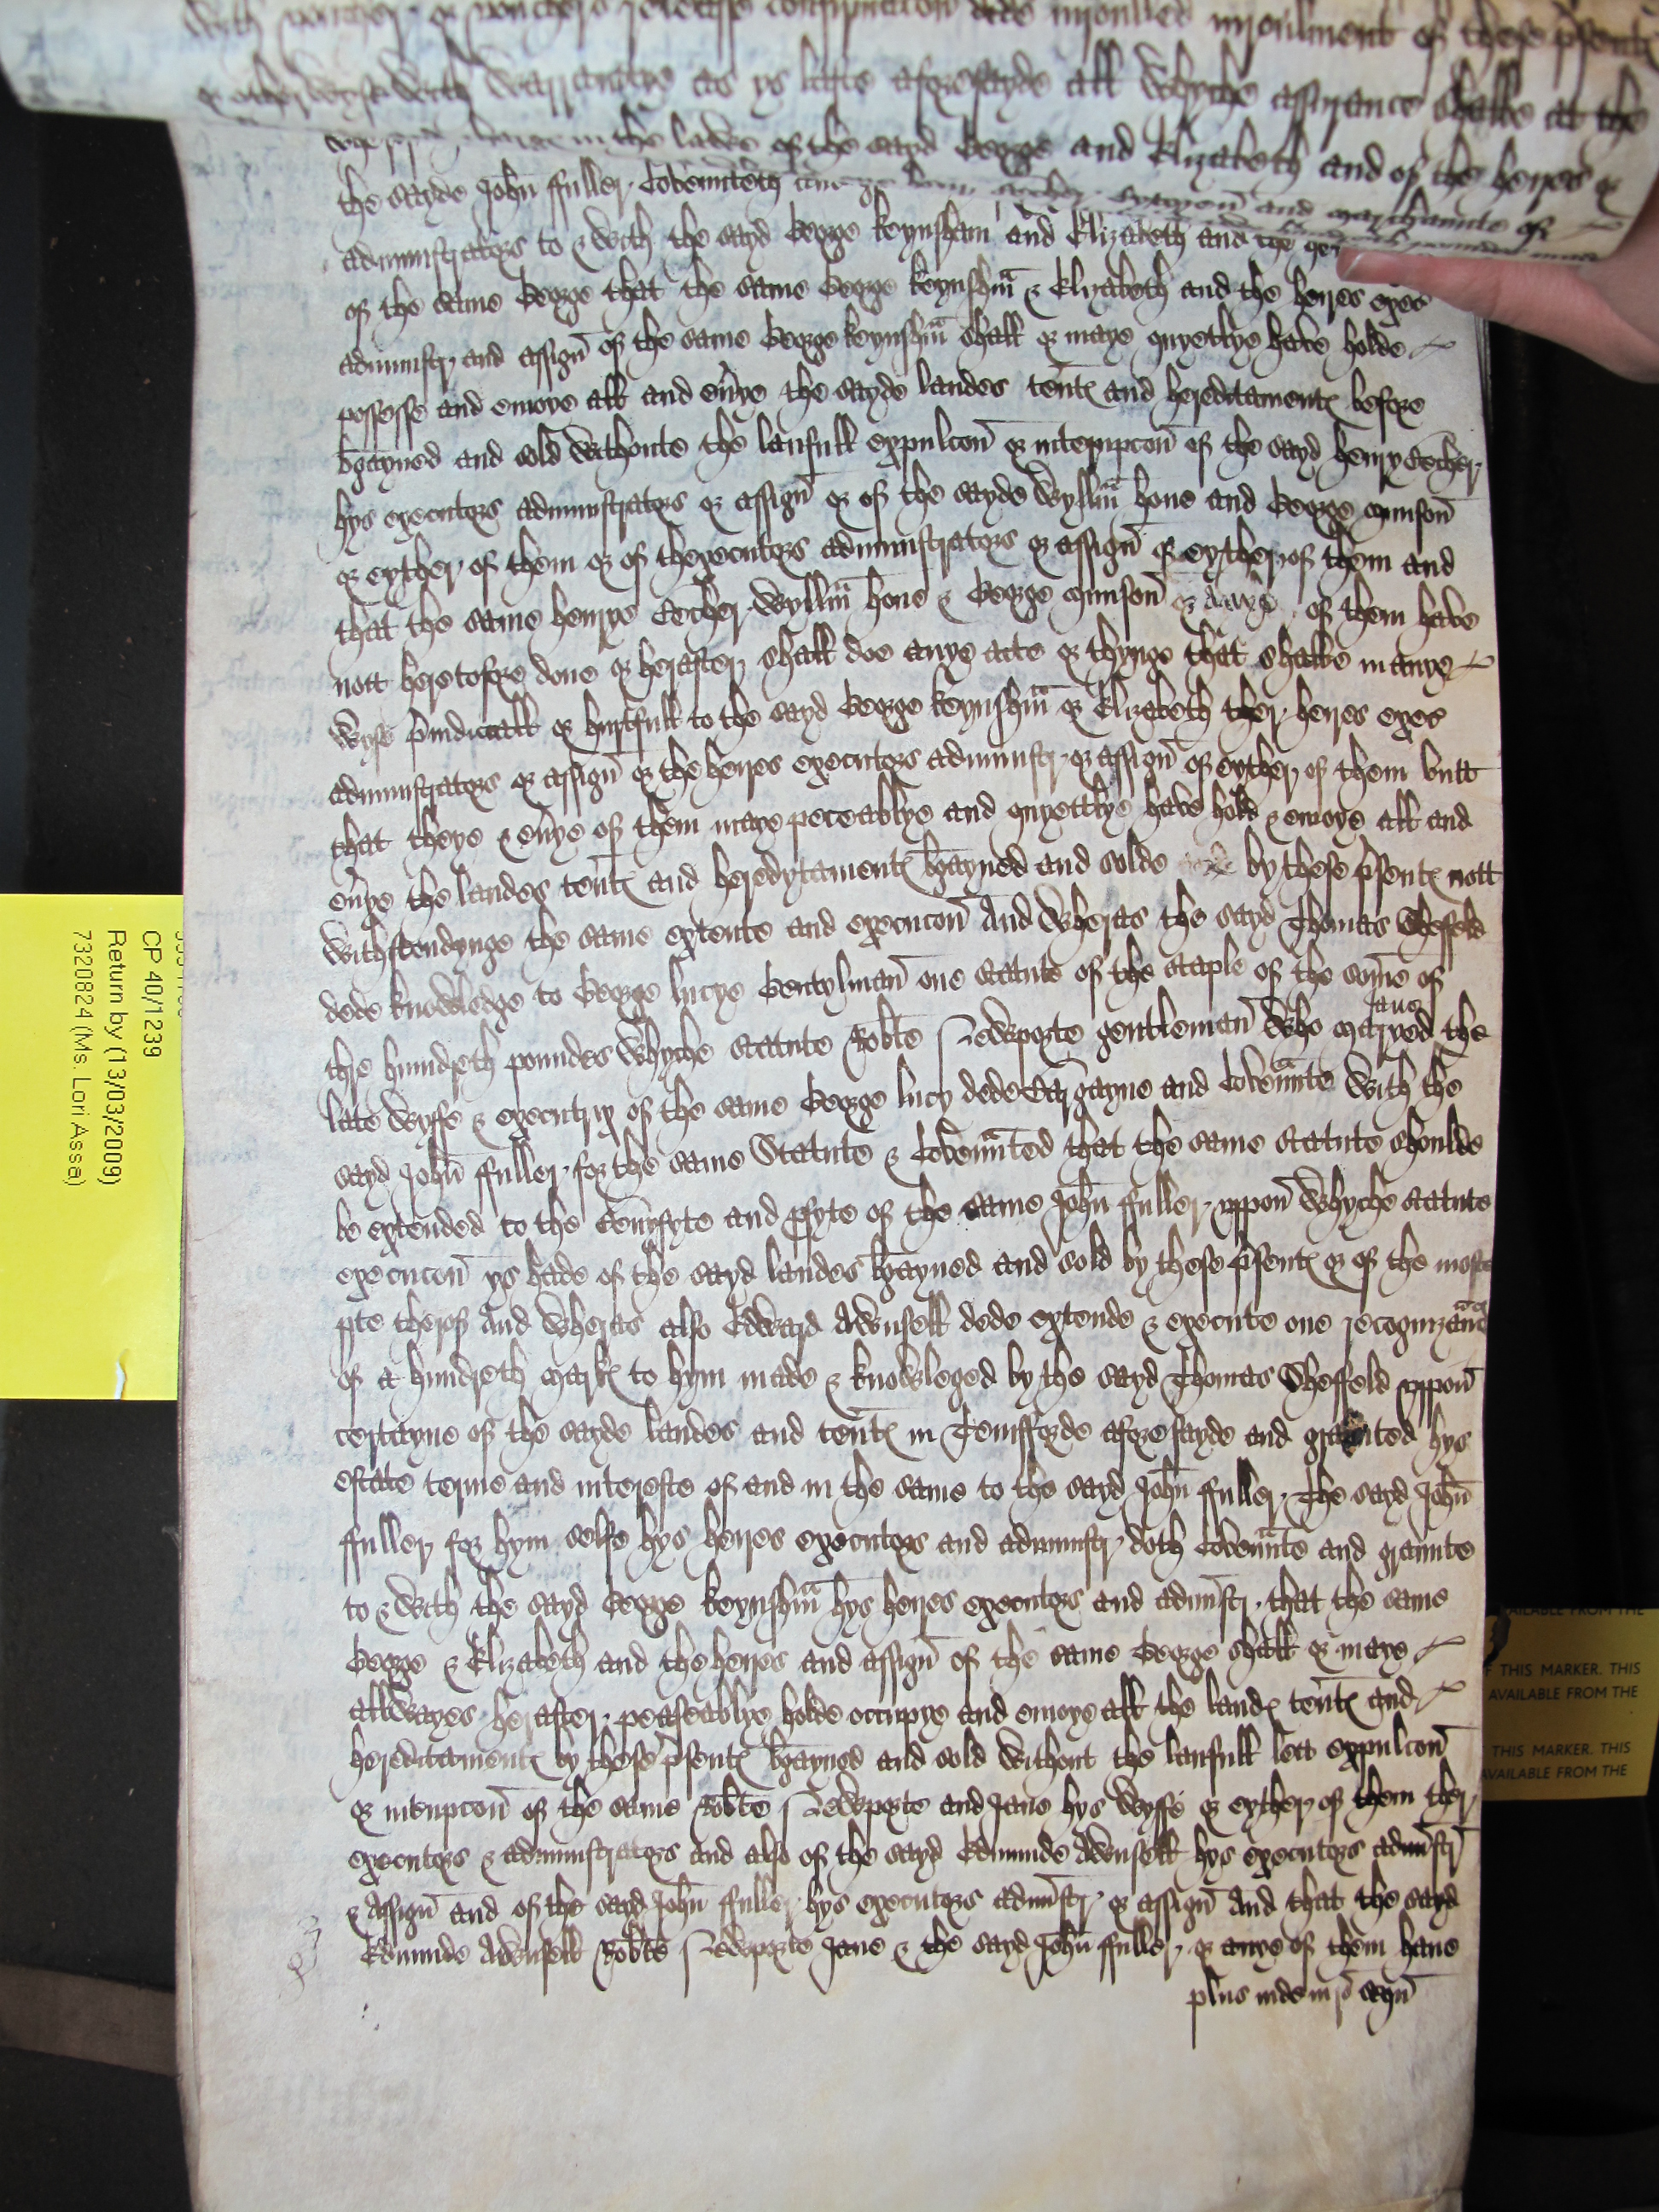 with voucher or vouchers release confirmation dede inrolled inrolment of these p'sentes
or otherwyse with warrantye as ys laste aforesayde all whyche assurance shalbe at the
in the lawe of the sayd George and Elizabeth and of the heyres of
the sayde John ffuller Covenuteth and cytezen and marchaunte of
administrators to & with the sayd George keynsham and Elizabeth and the hey
of the same George that the same George keynshm & Elizabeth and the heyres exec
administr and assign of the same George keynshm shall or maye quyetlye have holde
possesse and enioye all and ev'ye the sayde landes tent and hereditament before
bgayned and sold withoute the laufull expulcon or interupcon of the sayd henry Becher
hys executors administrators or assign or of the sayde Wyllm hone and George munson
or eyther of them or of thexecutors administrators or assign of eyther of them and
that the same henrye Becher Wyllm hone & George munson or anye of them have
nott heretofore done or herafter shall doe anye acte or thynge that shalbe in anye
wyse p'iudiciall or hurtfull to the sayd George keynshm or Elizabeth ther heyres exec
administrators or assign or the heyres executors administr or assign of eyther of them butt
that theye & ev'ye of them maye peceablye and quyettlye have hold & enioye all and
ev'ye the landes tent and heredytament bgayned and solde by these p'sent nott
withstandynge the same extente and execucon And wheras the sayd Thomas Sheffeld
dede knowledge to George lucye Gentylman one statute of the staple of the some of
thre hundreth poundes whyche statute Robte Newporte gentleman who maryed Jane the
late wyffe & executrix of the same George lucy dede Bargayne and Covennte with the
sayd John ffuller for the same Statute & Covennted that the same statute shoulde
be extended to the Benyfyte and pfyte of the same John ffuller uppon whyche statute
execucon ys hade of the sayd landes bgayned and sold by these p'sent or of the moste
pte therof And wheras also Edward Awnsell dede extende & execute one recognizance
of a hundreth mark to hym made & knowleged by the sayd Thomas Sheffeld uppon
certayne of the sayde landes and tent in Temfforde aforesayde and graunted hys
estate terme and intereste of and in the same to the sayd John ffuller The sayd John
ffuller for hym selfe hys heyres executors and administr doth Covennte and graunte
to & with the sayd George keynshm hys heyres executors and adminstr that the same
George & Elizabeth and the heyres and assign of the same George shall or maye
allwayes herafter peaseablye holde occupye and enioye all the land tent and
hereditament by these p'sent bgayned and sold without the laufull lett expulcon
or int'upcon of the same Robte Newporte and Jane hys wyffe or eyther of them ther
executors & administrators and also of the sayd Edmunde Awnsell hys executors adminstr
& Assign and of the sayd John ffuller hys executors adminstr or assign And that the sayd
Edmunde Awnsell Robte Newporte Jane & the sayd John ffuller or anye of them have
plus inde in p sequ
CP 40/1239
Return by (13/03/2009)
7320824 (Ms. Lori Assa)
AVAILABLE FROM THE
F THIS MARKER. THIS
AVAILABLE FROM THE
THIS MARKER. THIS
AVAILABLE FROM THE